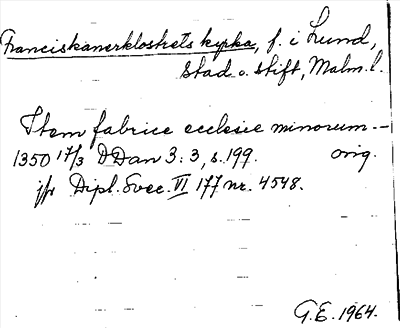 Franciskanerklostrets kyrka, f. i Lund,
stad o. stift, Malm. l.
Item fabrice ecclesie minorum. –
1350 17/3 DDan 3:3, s. 199. orig.
jfr Dipl. Svec. VI 177 nr. 4548.
G.E. 1964.